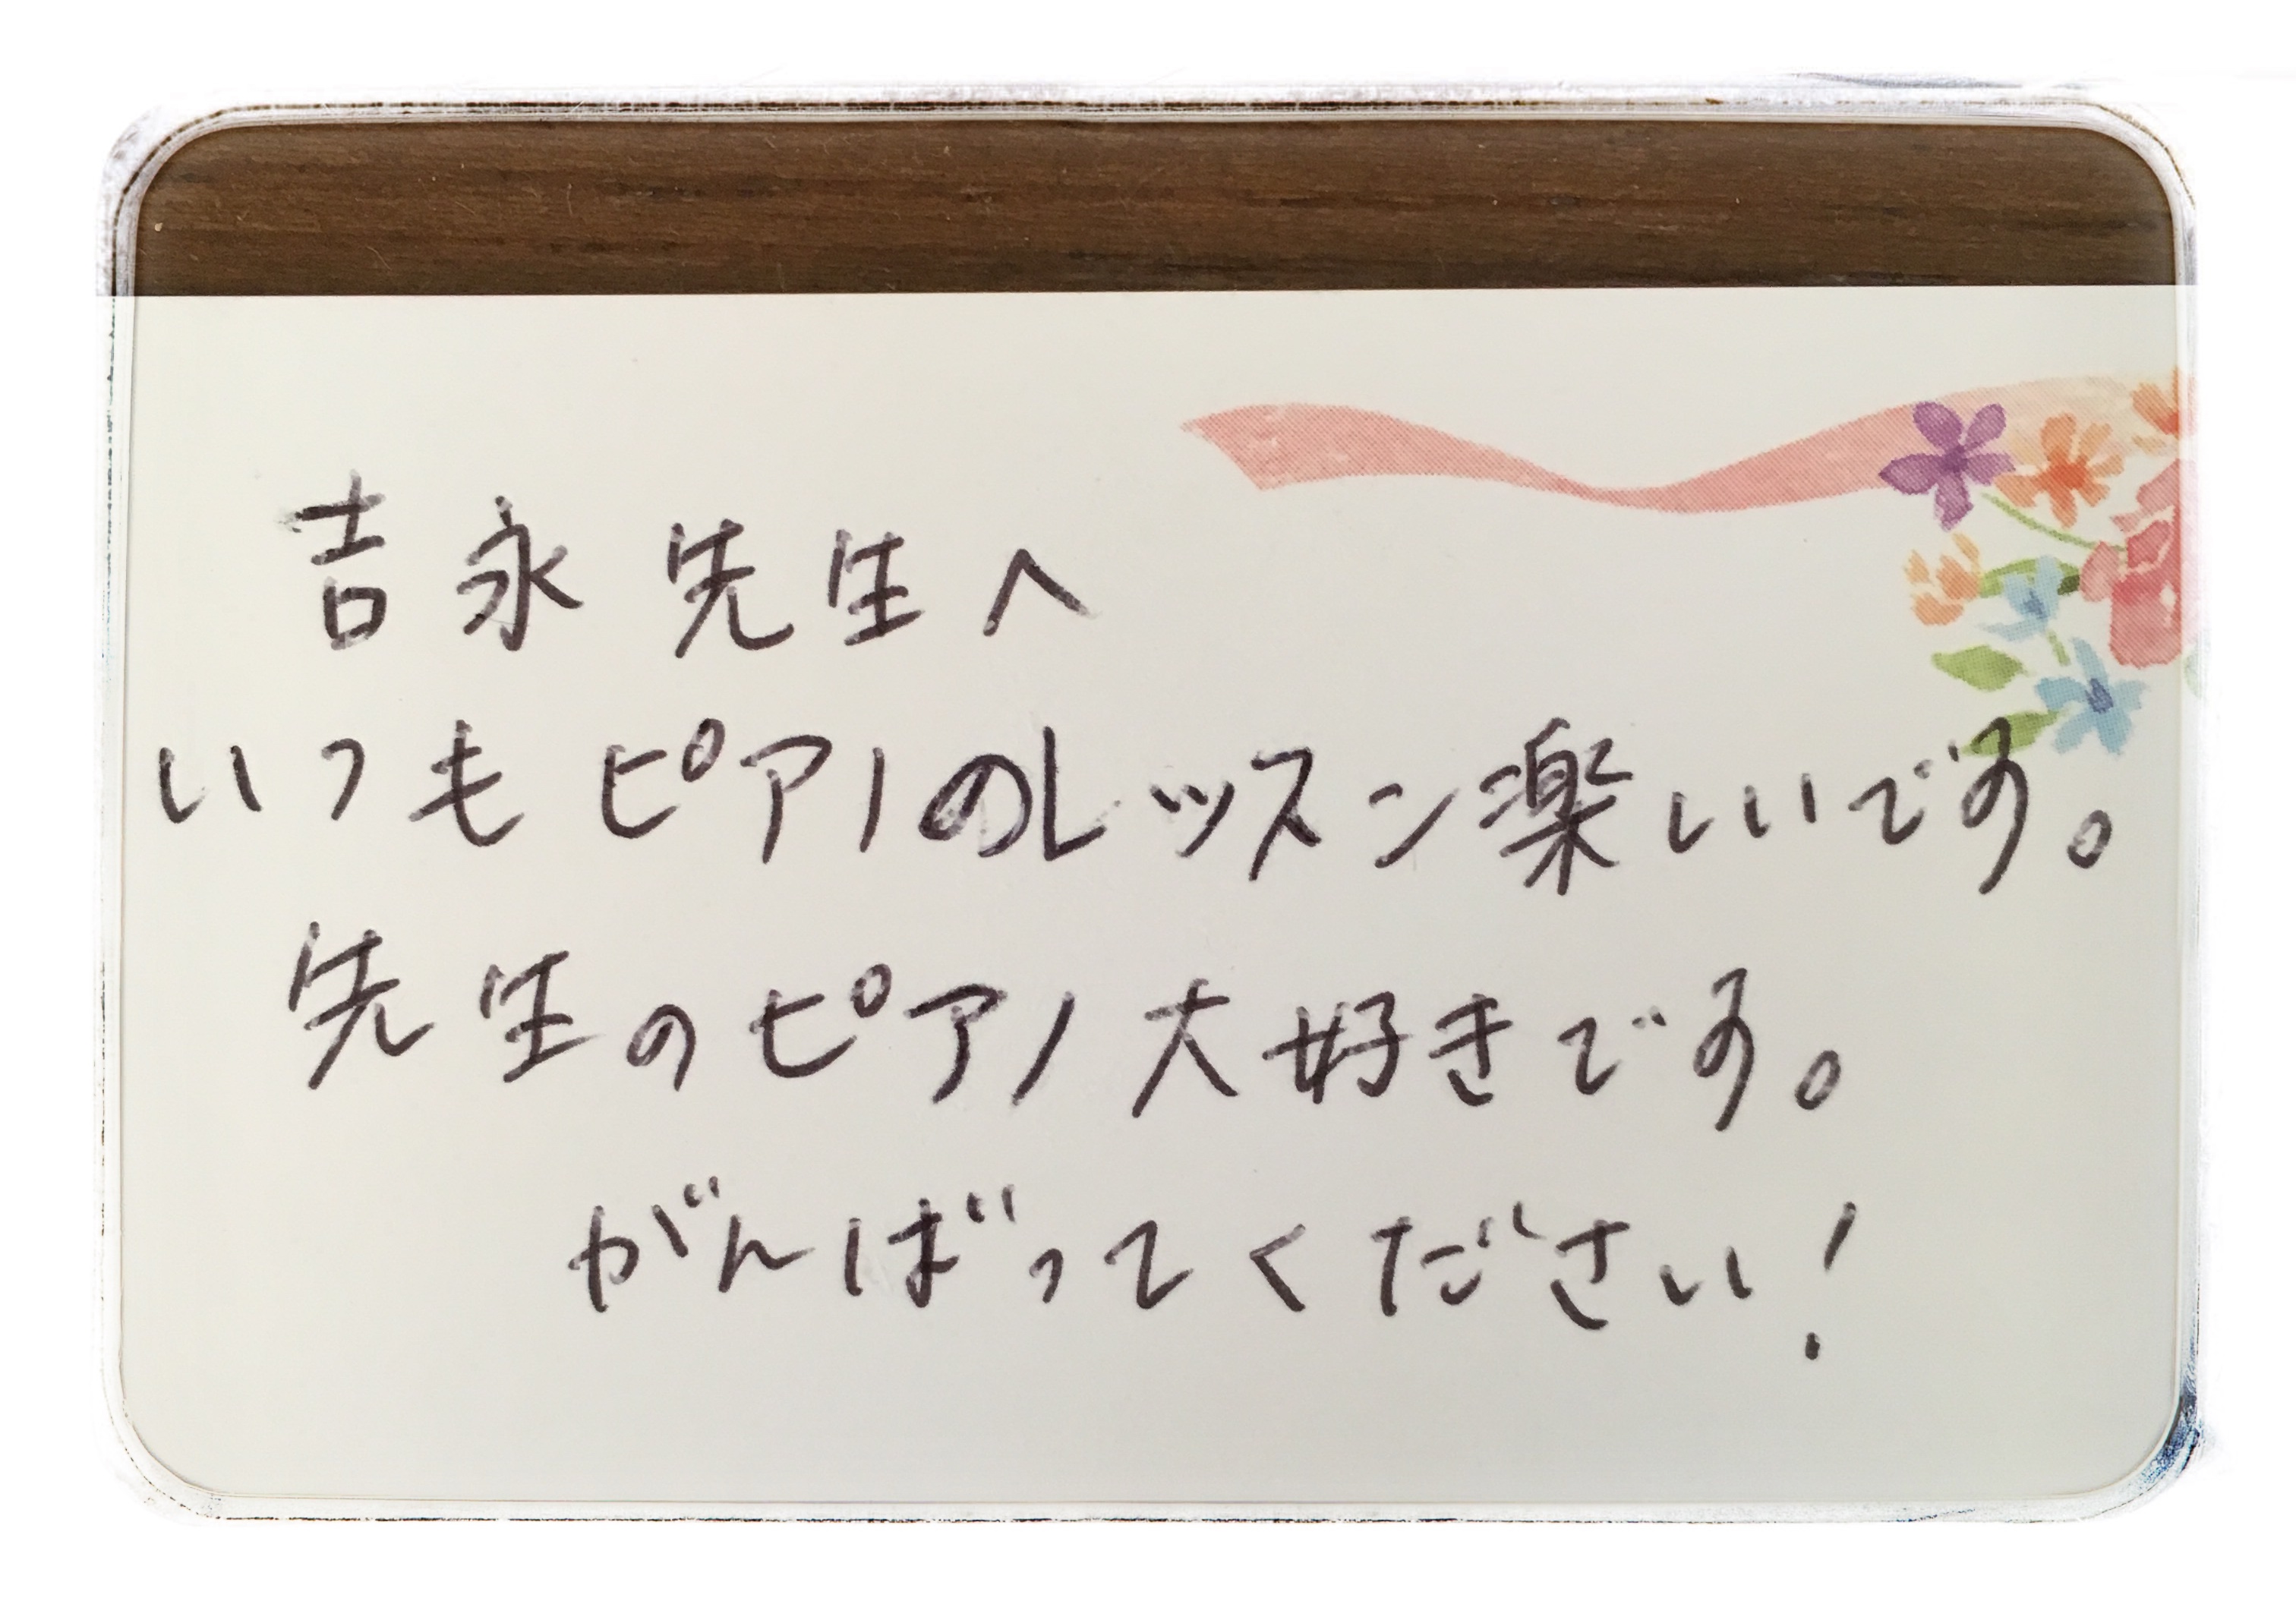 吉永先生へ
いつもピアノのレッスン楽しいです。
先生のピアノ大好きです。
がんばってください!